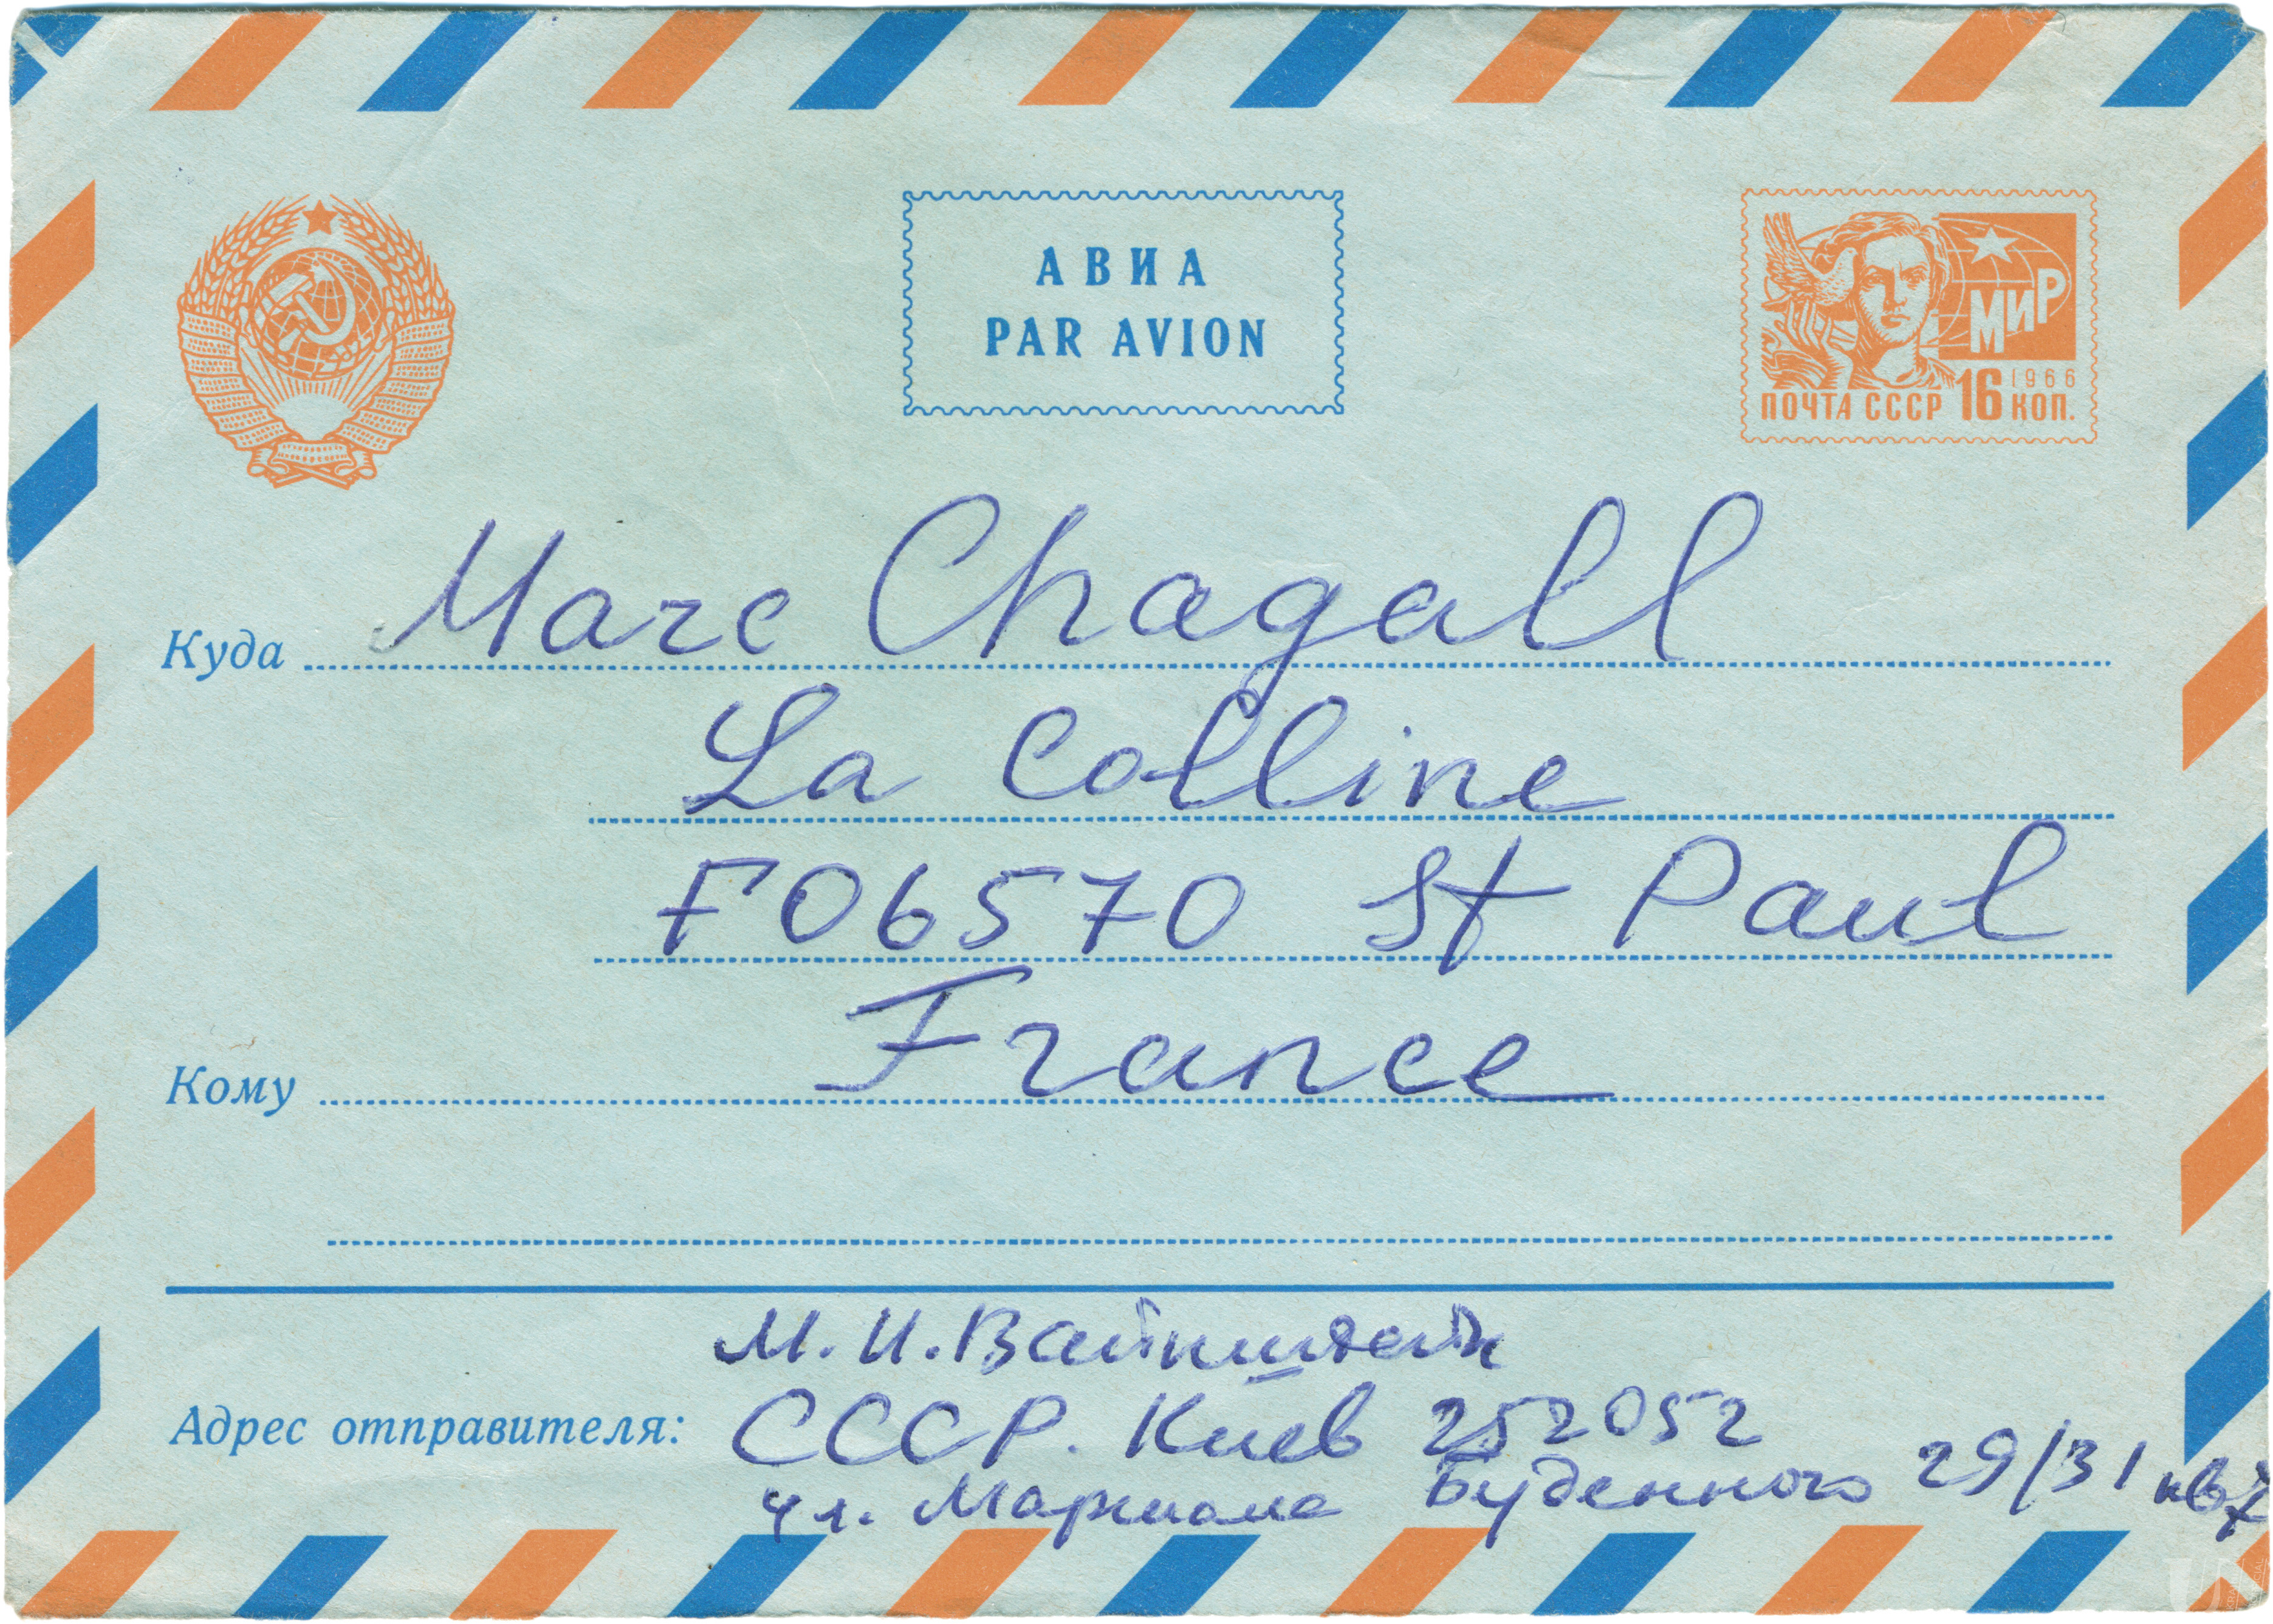 АВИА
PAR AVION
МИР
1966
ПОЧТА СССР 16 КОП.
Куда Marc Chagall
La Colline
F06570 St Paul
Кому France
М. И. Вайнштейн
Адрес отправителя: СССР. Киев 252052
ул. Маршала Буденного 29/31 кв 7